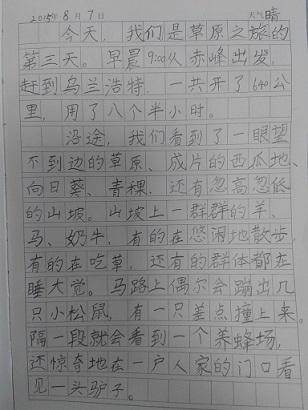 2015年8月7日 天气晴
今天，我们是草原之旅的
第三天。早晨9:00从赤峰出发，
赶到乌兰浩特，一共开了640公
里，用了八个半小时。
沿途，我们看到了一眼望
不到边的草原、成片的西瓜地、
向日葵、青稞，还有忽高忽低
的山坡。山坡上一群群的羊、
马、奶牛，有的在悠闲地散步，
有的在吃草，还有的群体都在
睡大觉。马路上偶尔会蹦出几
只小松鼠，有一只差点撞上来。
隔一段就会看到一个养蜂场，
还惊奇地在一户人家的门口看
见一头驴子。